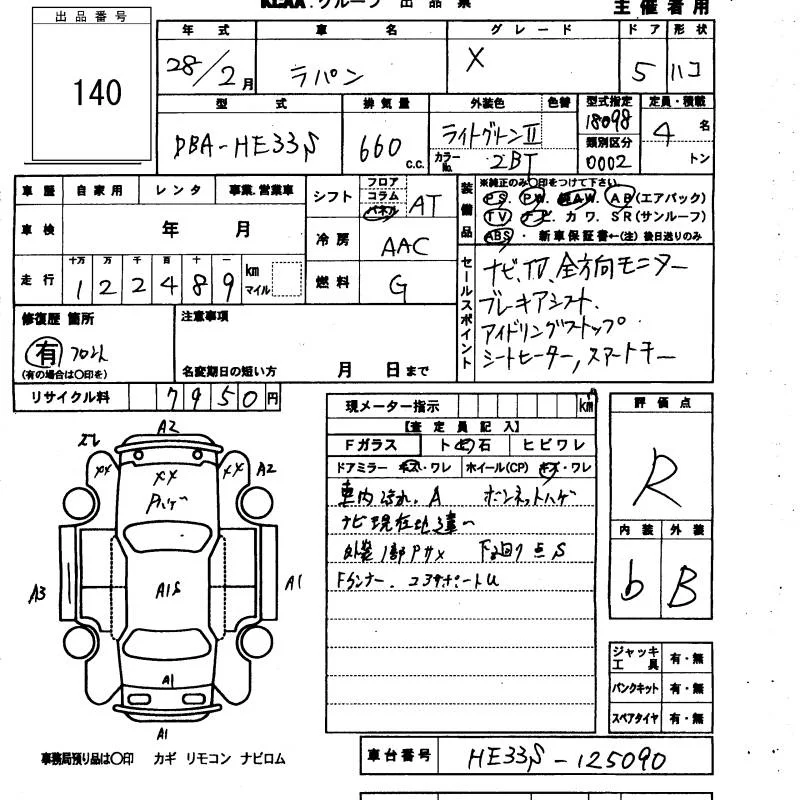 KCAA.グループ 出品票
主催者用
出品番号
140
年式 車名 グレード ドア 形状
28/2月 ラパン X 5 ハコ
型式 排気量 外装色 色替 型式指定 定員・積載
DBA-HE33S 660 c.c. ライトグリーンⅡ 18098 4名
カラーNo. 2BT 類別区分 0002 トン
車歴 自家用 レンタ 事業.営業車
車検 年 月
走行 十万 万 千 百 十 一
1 2 2 4 8 9 km マイル
シフト フロア コラム パネル AT
冷房 AAC
燃料 G
装備品 ※純正のみ〇印をつけて下さい。
PS. PW. AW. AB(エアバック)
TV ナビ. カワ. SR(サンルーフ)
ABS・ 新車保証書←(注)後日送りのみ
セールスポイント
ナビ、TV、全方向モニター
ブレーキアシスト、
アイドリングストップ
シートヒーター, スマートキー
修復歴 箇所
有 フロント
(有の場合は〇印を)
注意事項
名変期日の短い方 月 日まで
リサイクル料 7950円
現メーター指示 km
【査定員記入】
Fガラス トビ石 ヒビワレ
ドアミラー キズ・ワレ ホイール(CP) キズ・ワレ
車内汚れ. A ボンネットハゲ
ナビ現在地違い
外装1部Pサメ 下廻り点S
Fランナー. コアサポートU
評価点
R
内装 外装
b B
A2
XX
XX
XX
A2
Pハゲ
A3
A1S
A1
A1
A1
ジャッキ工具 有・無
パンクキット 有・無
スペアタイヤ 有・無
事務局預り品は〇印 カギ リモコン ナビロム
車台番号 HE33S-125090